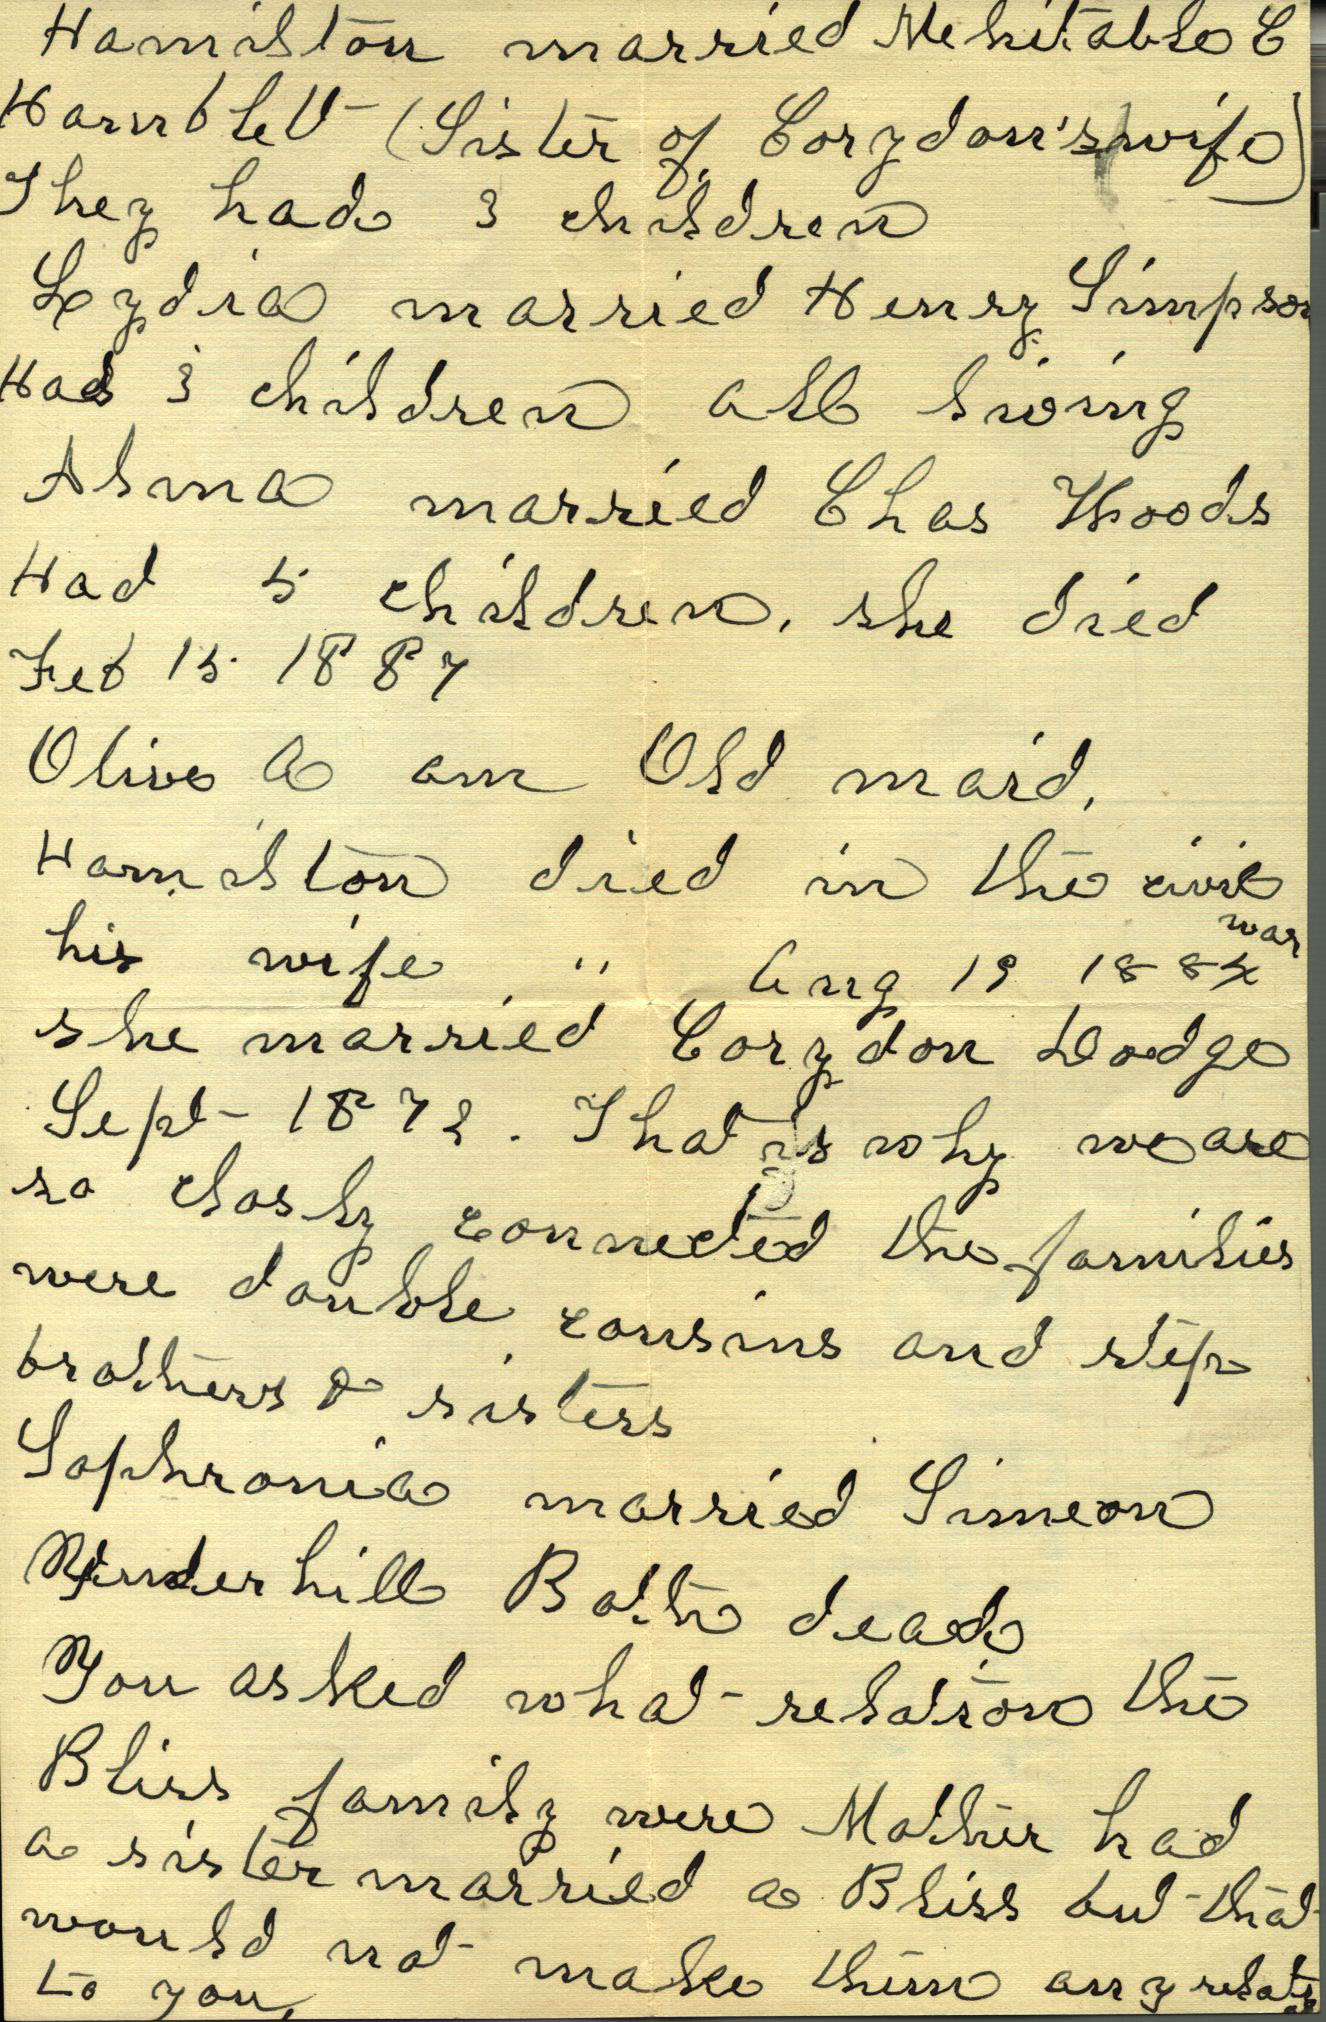 Hamilton married Mehitable C
Hamblet (Sister of Corydon's wife)
They had 3 children
Lydia married Henry Simpson
Had 3 children all living
Alma married Chas Woods
Had 5 children, she died
Feb 15 1887
Olive A am Old maid,
Hamilton died in the civil
war
his wife " Aug 19 1884
she married Corydon Dodge
Sept 1873. That is why we are
so closly connected the families
were double cousins and step
brothers & sisters
Sophronia married Simeon
Underhill Both dead
You asked what relation the
Bliss family were Mother had
a sister married a Bliss but that
would not make them any
to you,